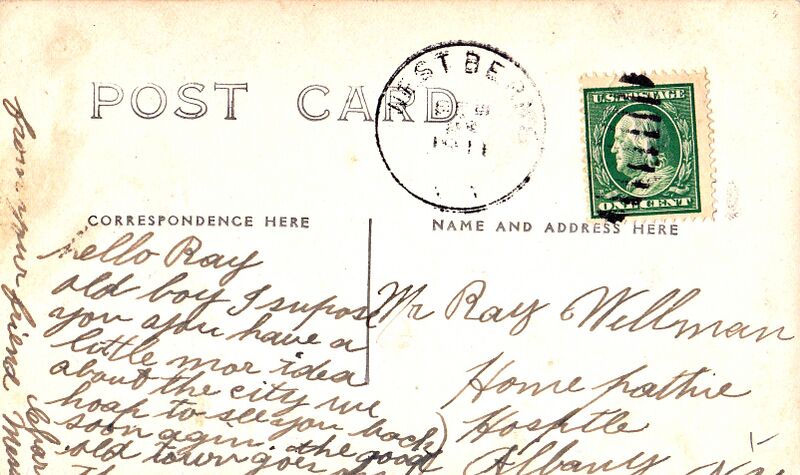 POST CARD
WEST BERNE
1911
U.S. POSTAGE
ONE CENT
CORRESPONDENCE HERE
NAME AND ADDRESS HERE
hello Ray
old boy I supose
you you have a
little mor idea
about the city we
hoap to see you back
soon agin. the good
old town goes
Mr Ray Willman
Home pathic
Hospitle
Albany
from your friend